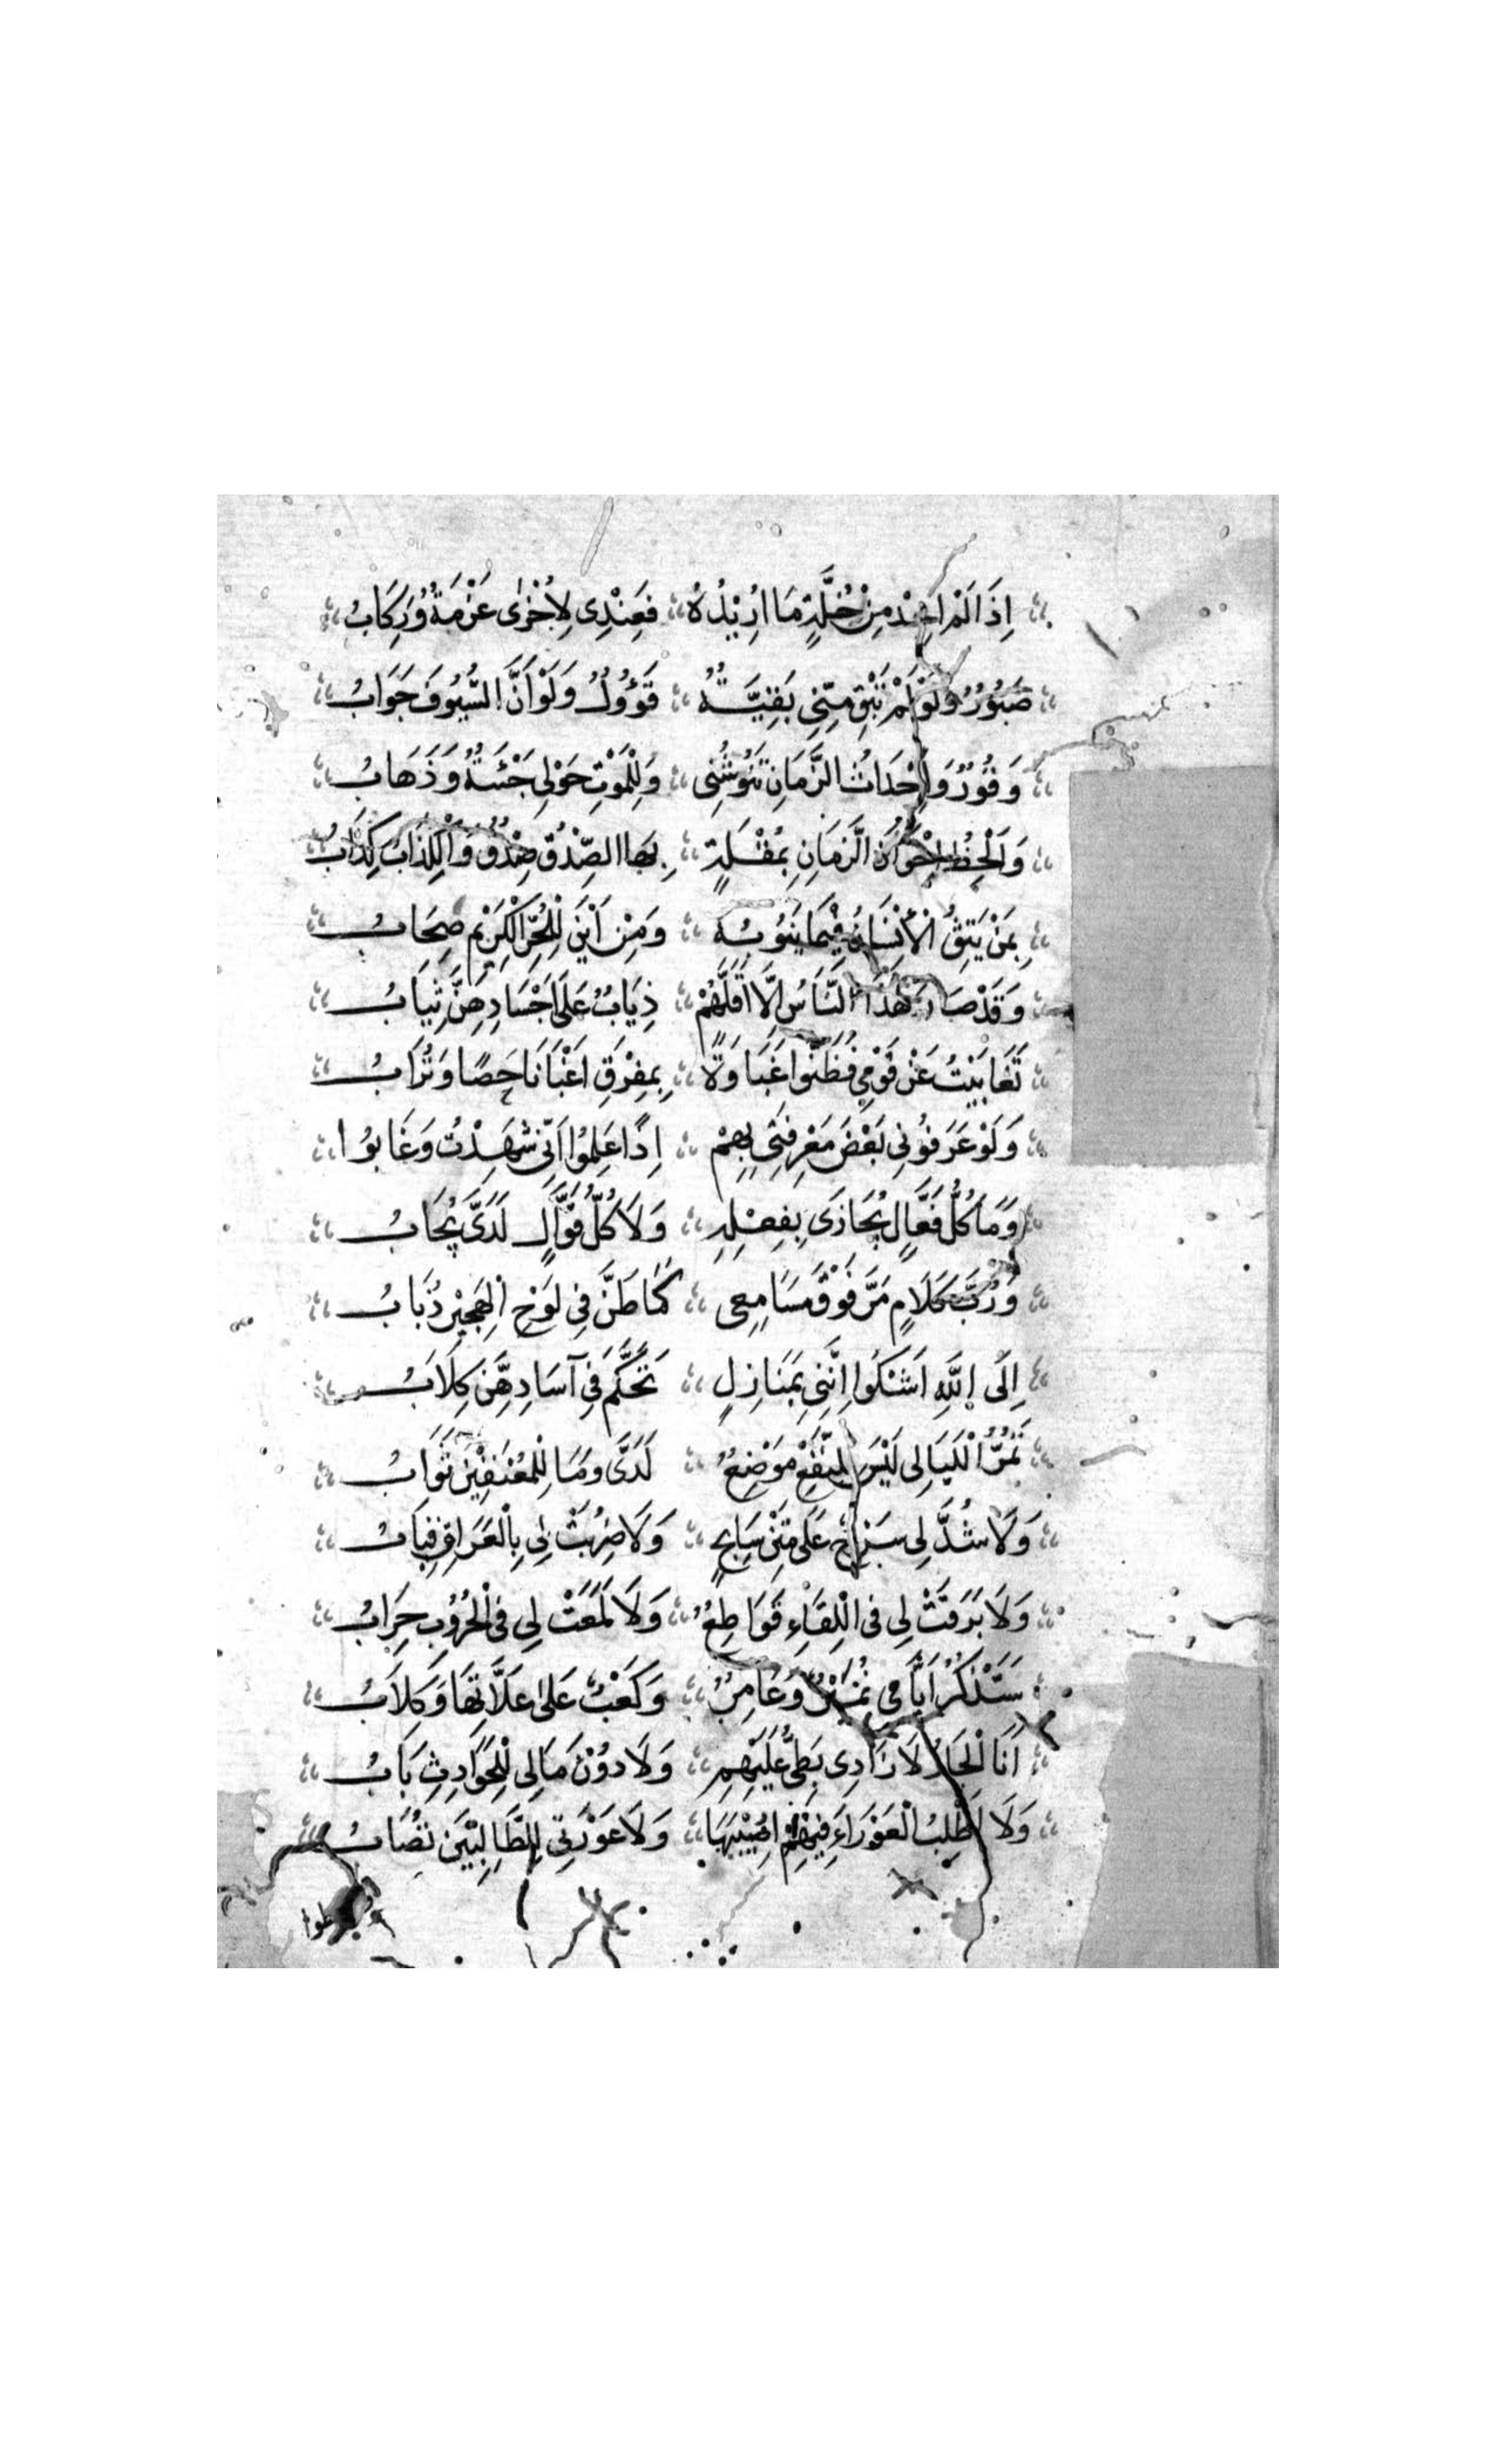 اِذَا لَمْ اَجِدْ مِنْ خُلَّةٍ مَا اُرِيْدُهُ فَعِنْدِى لِاُخْرٰى عَزْمَةٌ وَرِكَابُ
صَبُوْرٌ وَلَوْ لَمْ تَبْقَ مِنِّى بَقِيَّةٌ قَؤُولٌ وَلَوْ اَنَّ السُّيُوفَ جَوَابُ
وَقُوْرٌ وَاَحْدَاثُ الزَّمَانِ تَنُوْشُنِى وَلِلْمَوْتِ حَوْلِى جَئَةٌ وَذَهَابُ
وَاَلْحَظُ اَحْوَالَ الزَّمَانِ بِمُقْلَةٍ بِهَا الصِّدْقُ صِدْقٌ وَالْكِذَابُ كِذَابُ
بِمَنْ يَثِقُ الْاِنْسَانُ فِيْمَا يَنُوْبُهُ وَمِنْ اَيْنَ لِلْحُرِّ الْكَرِيْمِ صِحَابُ
وَقَدْ صَارَ هٰذَا النَّاسُ اِلَّا اَقَلَّهُمْ ذِيَابٌ عَلَى اَجْسَادِهِنَّ ثِيَابُ
تَغَابَيْتُ عَنْ قَوْمِى فَظَنُّوا غَبَاوَةً بِمِفْرَقِ اَغْبَانَا حَصًا وَتُرَابُ
وَلَوْ عَرَفُوْنِى بَعْضَ مَعْرِفَتِى بِهِمْ اِذًا عَلِمُوا اَنِّى شَهِدْتُ وَغَابُوْا
وَمَا كُلُّ فَعَّالٍ يُجَازَى بِفِعْلِهِ وَلَا كُلُّ قَوَّالٍ لَدَىَّ يُجَابُ
وَرُبَّ كَلَامٍ مَرَّ فَوْقَ مَسَامِعِى كَمَا طَنَّ فِى لَوْحِ الْهَجِيْرِ ذُبَابُ
اِلَى اللّٰهِ اَشْكُوا اِنَّنِى بِمَنَازِلٍ تَحَكَّمُ فِى آسَادِهِنَّ كِلَابُ
تَمُرُّ اللَّيَالِى لَيْسَ لِلنَّفْعِ مَوْضِعٌ لَدَىَّ وَمَا لِلْمُعْتَفِيْنَ ثَوَابُ
وَلَا شُدَّ لِى سَرْجٌ عَلَى مَتْنِ سَابِحٍ وَلَا ضُرِبَتْ لِى بِالْعَرَاقِ قِبَابُ
وَلَا بَرَقَتْ لِى فِى الْلِقَاءِ قَوَاطِعٌ وَلَا لَمَعَتْ لِى فِى الْحُرُوْبِ حِرَابُ
سَتَذْكُرُ اَيَّامِى نُمَيْرٌ وَعَامِرٌ وَكَعْبٌ عَلٰى عَلَّاتِهَا وَكِلَابُ
اَنَا الْجَارُ لَا زَادِى بَطِىٌّ عَلَيْهِمِ وَلَا دُوْنَ مَالِى لِلْحَوَادِثِ بَابُ
وَلَا اَطْلُبُ الْعَوْرَاءَ فِيْهِمْ اُصِيْبُهَا وَلَا عَوْرَتِى لِلطَّالِبِيْنَ تُصَابُ